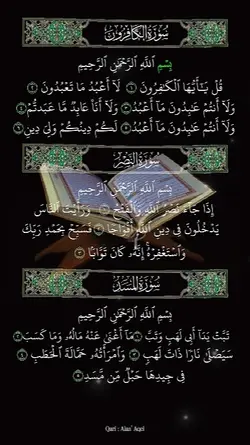 سُورَةُ الكَافِرُونَ
بِسْمِ اللَّهِ الرَّحْمَٰنِ الرَّحِيمِ
قُلْ يَٰٓأَيُّهَا ٱلْكَٰفِرُونَ ۝١ لَآ أَعْبُدُ مَا تَعْبُدُونَ ۝٢
وَلَآ أَنتُمْ عَٰبِدُونَ مَآ أَعْبُدُ ۝٣ وَلَآ أَنَا۠ عَابِدٌ مَّا عَبَدتُّمْ ۝٤
وَلَآ أَنتُمْ عَٰبِدُونَ مَآ أَعْبُدُ ۝٥ لَكُمْ دِينُكُمْ وَلِىَ دِينِ ۝٦
سُورَةُ النَّصْرِ
بِسْمِ اللَّهِ الرَّحْمَٰنِ الرَّحِيمِ
إِذَا جَآءَ نَصْرُ ٱللَّهِ وَٱلْفَتْحُ ۝١ وَرَأَيْتَ ٱلنَّاسَ
يَدْخُلُونَ فِى دِينِ ٱللَّهِ أَفْوَاجًا ۝٢ فَسَبِّحْ بِحَمْدِ رَبِّكَ
وَٱسْتَغْفِرْهُ ۚ إِنَّهُۥ كَانَ تَوَّابًۢا ۝٣
سُورَةُ المَسَدِ
بِسْمِ اللَّهِ الرَّحْمَٰنِ الرَّحِيمِ
تَبَّتْ يَدَآ أَبِى لَهَبٍ وَتَبَّ ۝١ مَآ أَغْنَىٰ عَنْهُ مَالُهُۥ وَمَا كَسَبَ ۝٢
سَيَصْلَىٰ نَارًا ذَاتَ لَهَبٍ ۝٣ وَٱمْرَأَتُهُۥ حَمَّالَةَ ٱلْحَطَبِ ۝٤
فِى جِيدِهَا حَبْلٌ مِّن مَّسَدٍۭ ۝٥
Qari : Alaa' Aqel